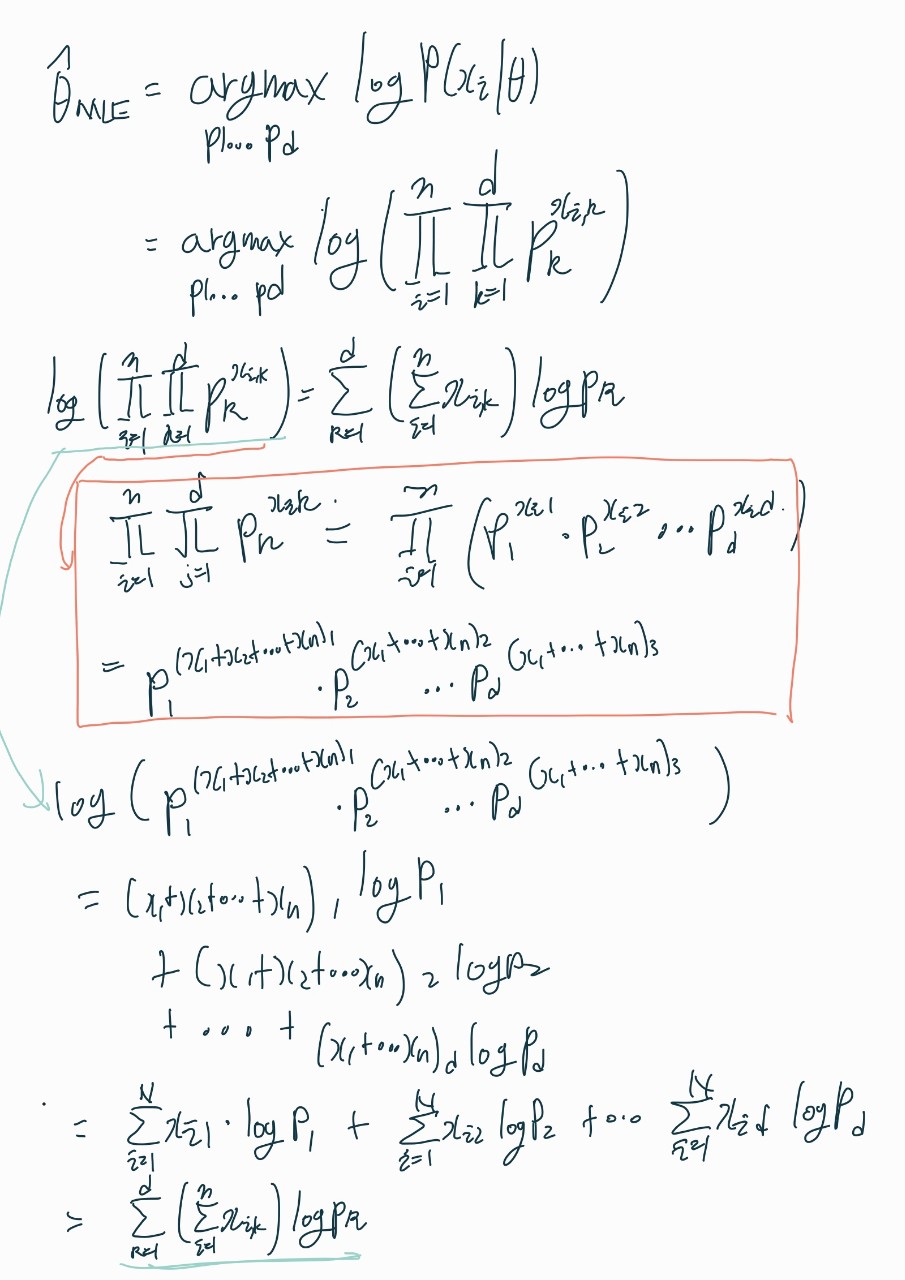 θ̂_MLE = argmax_{p1... pd} log P(x_i|θ)
= argmax_{p1... pd} log ( ∏_{i=1}^{n} ∏_{k=1}^{d} p_k^{x_{ik}} )
log ( ∏_{i=1}^{n} ∏_{k=1}^{d} p_k^{x_{ik}} ) = ∑_{k=1}^{d} ( ∑_{i=1}^{n} x_{ik} ) log p_k
∏_{i=1}^{n} ∏_{j=1}^{d} p_k^{x_{ik}} = ∏_{i=1}^{n} ( p_1^{x_{i1}} · p_2^{x_{i2}} ... p_d^{x_{id}} )
= p_1^{(x_1+x_2+...+x_n)_1} · p_2^{(x_1+...+x_n)_2} ... p_d^{(x_1+...+x_n)_3}
log ( p_1^{(x_1+x_2+...+x_n)_1} · p_2^{(x_1+...+x_n)_2} ... p_d^{(x_1+...+x_n)_3} )
= (x_1+x_2+...+x_n)_1 log p_1
+ (x_1+x_2+...x_n)_2 log p_2
+ ... + (x_1+...x_n)_d log p_d
= ∑_{i=1}^{N} x_{i1} · log p_1 + ∑_{i=1}^{N} x_{i2} log p_2 + ... ∑_{i=1}^{N} x_{id} log p_d
= ∑_{k=1}^{d} ( ∑_{i=1}^{n} x_{ik} ) log p_k